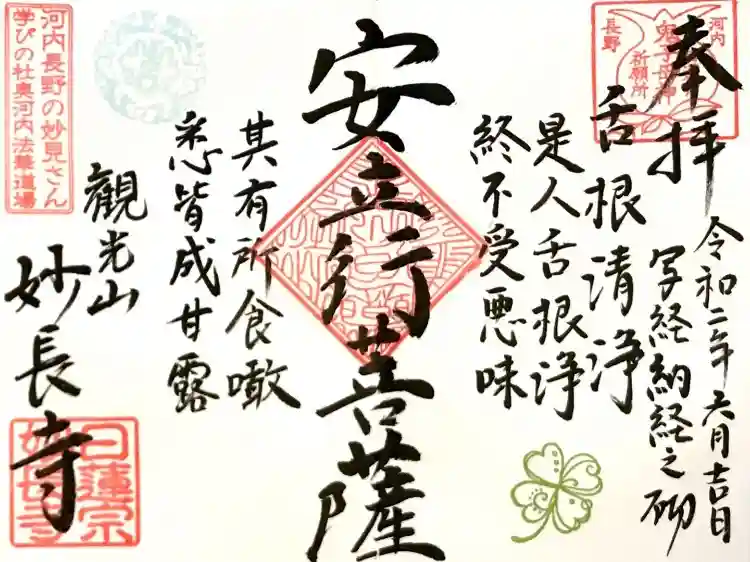 奉拝
令和二年六月吉日
写経納経之砌
舌根清浄
是人舌根浄
終不受悪味
安立行菩薩
其有所食噉
悉皆成甘露
観光山
妙長寺
河内
長野
鬼子母神
祈願所
河内長野の妙見さん
学びの杜奥河内法華道場
日蓮宗
妙長寺